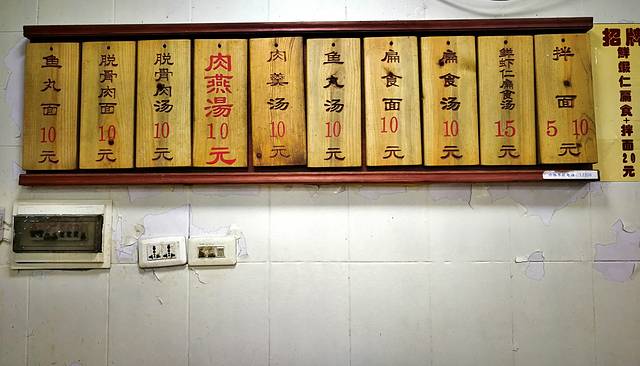 鱼丸面 10 元
脱骨肉面 10 元
脱骨肉汤 10 元
肉燕湯 10 元
肉羹汤 10 元
鱼丸汤 10 元
扁食面 10 元
扁食汤 10 元
鲜虾仁扁食汤 15 元
拌面 5 10 元
招牌
鲜蝦仁扁食+拌面20元